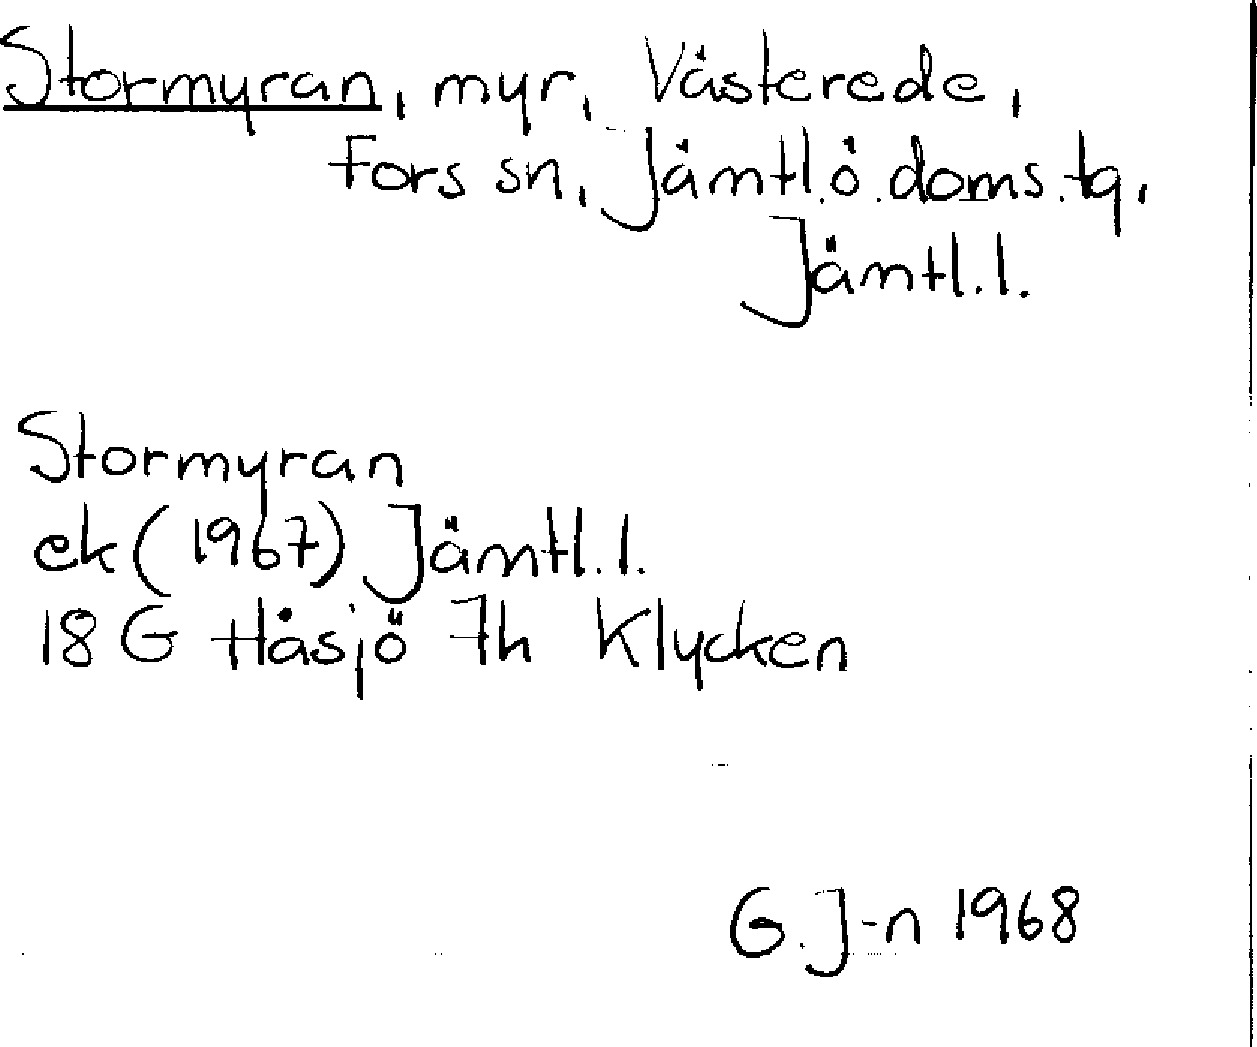 Stormyran, myr, Västerede,
Fors sn, Jämtl.ö.doms.tg,
Jämtl.l.
Stormyran
ek (1967) Jämtl.l.
18 G Håsjö 7h Klycken
G.J-n 1968